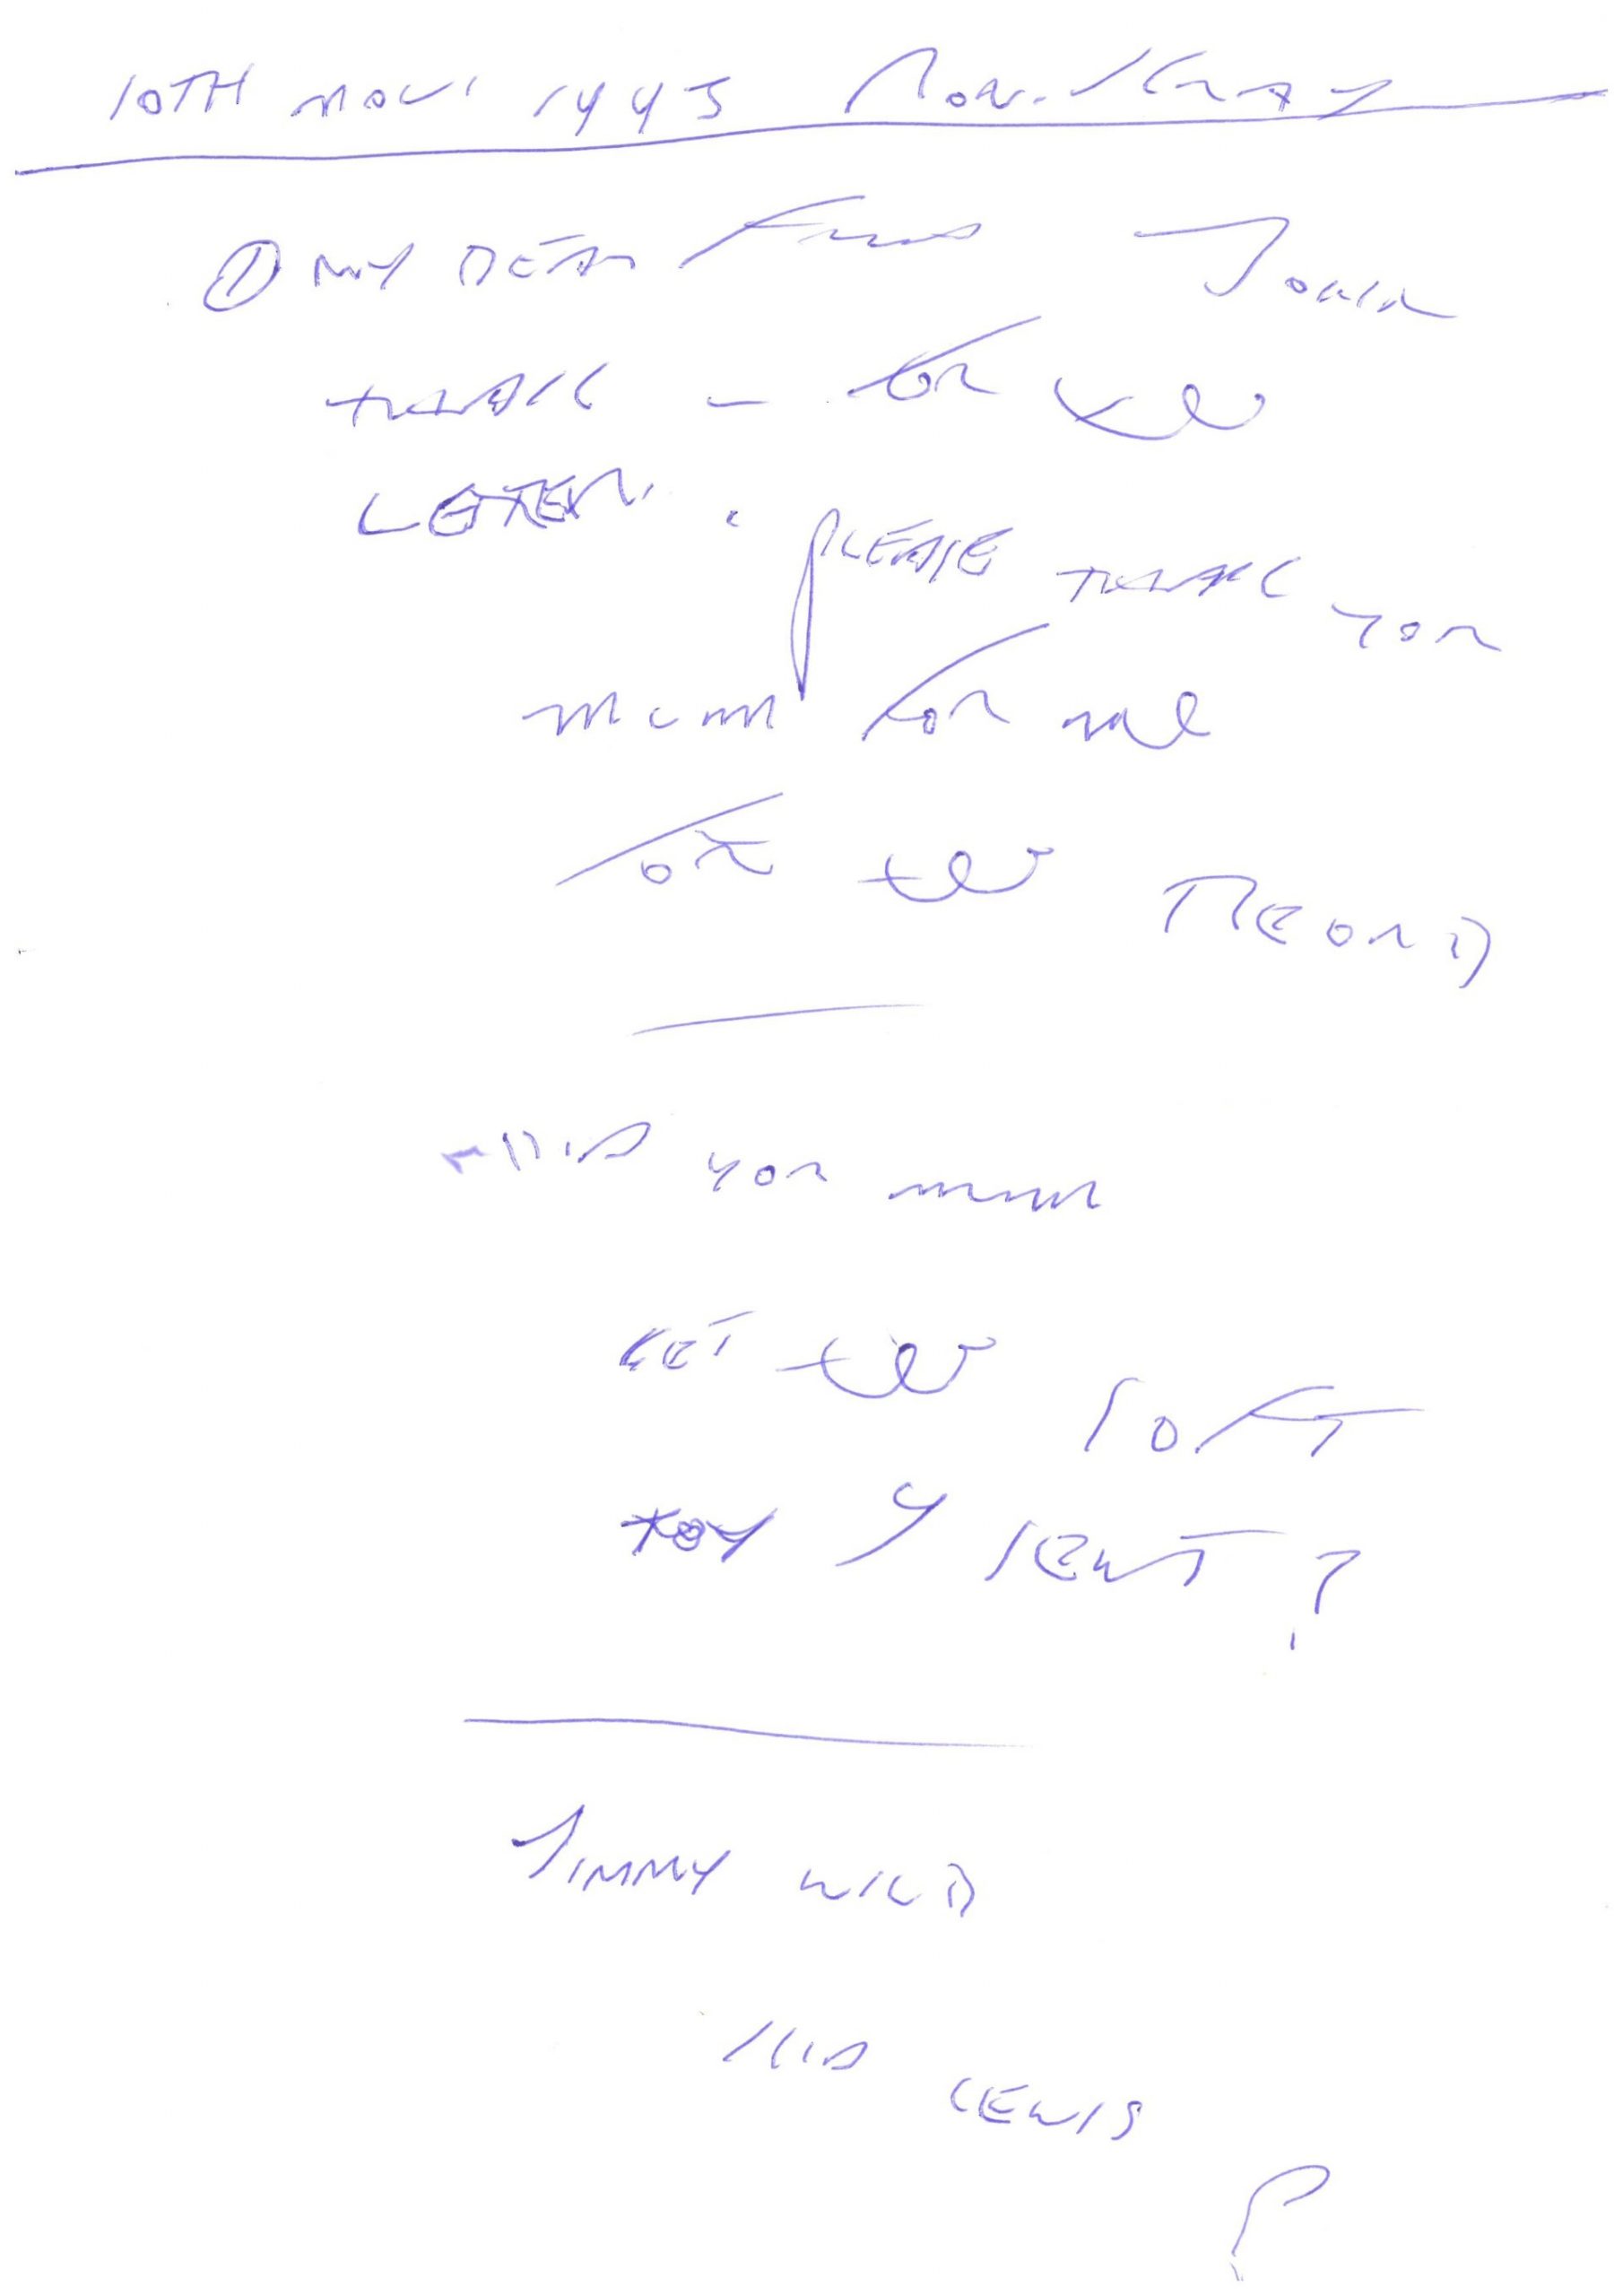 10TH NOV. 1993 Ron. Kray
① MY DEAR Friend
THANK - for the
LETTER. PLEASE THANK YOR
mum for me
for the RECORD
DID YOR mum
GET the SOFT
TOY I SENT?
JIMMY WILD
KID LEWIS
?